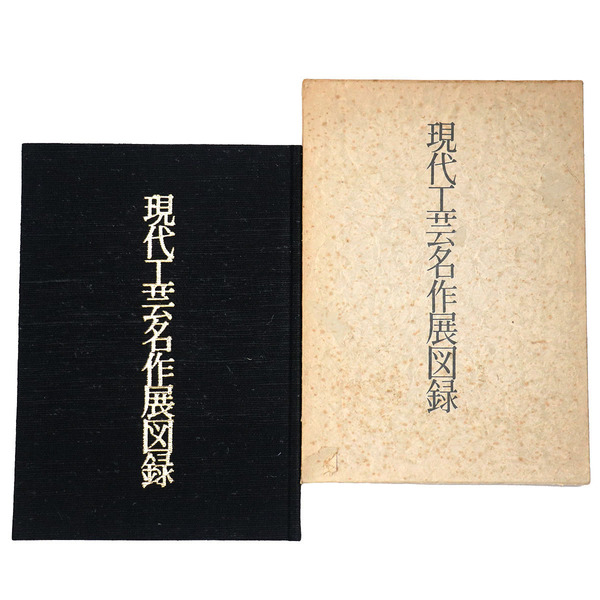 現代工芸名作展図録
現代工芸名作展図録